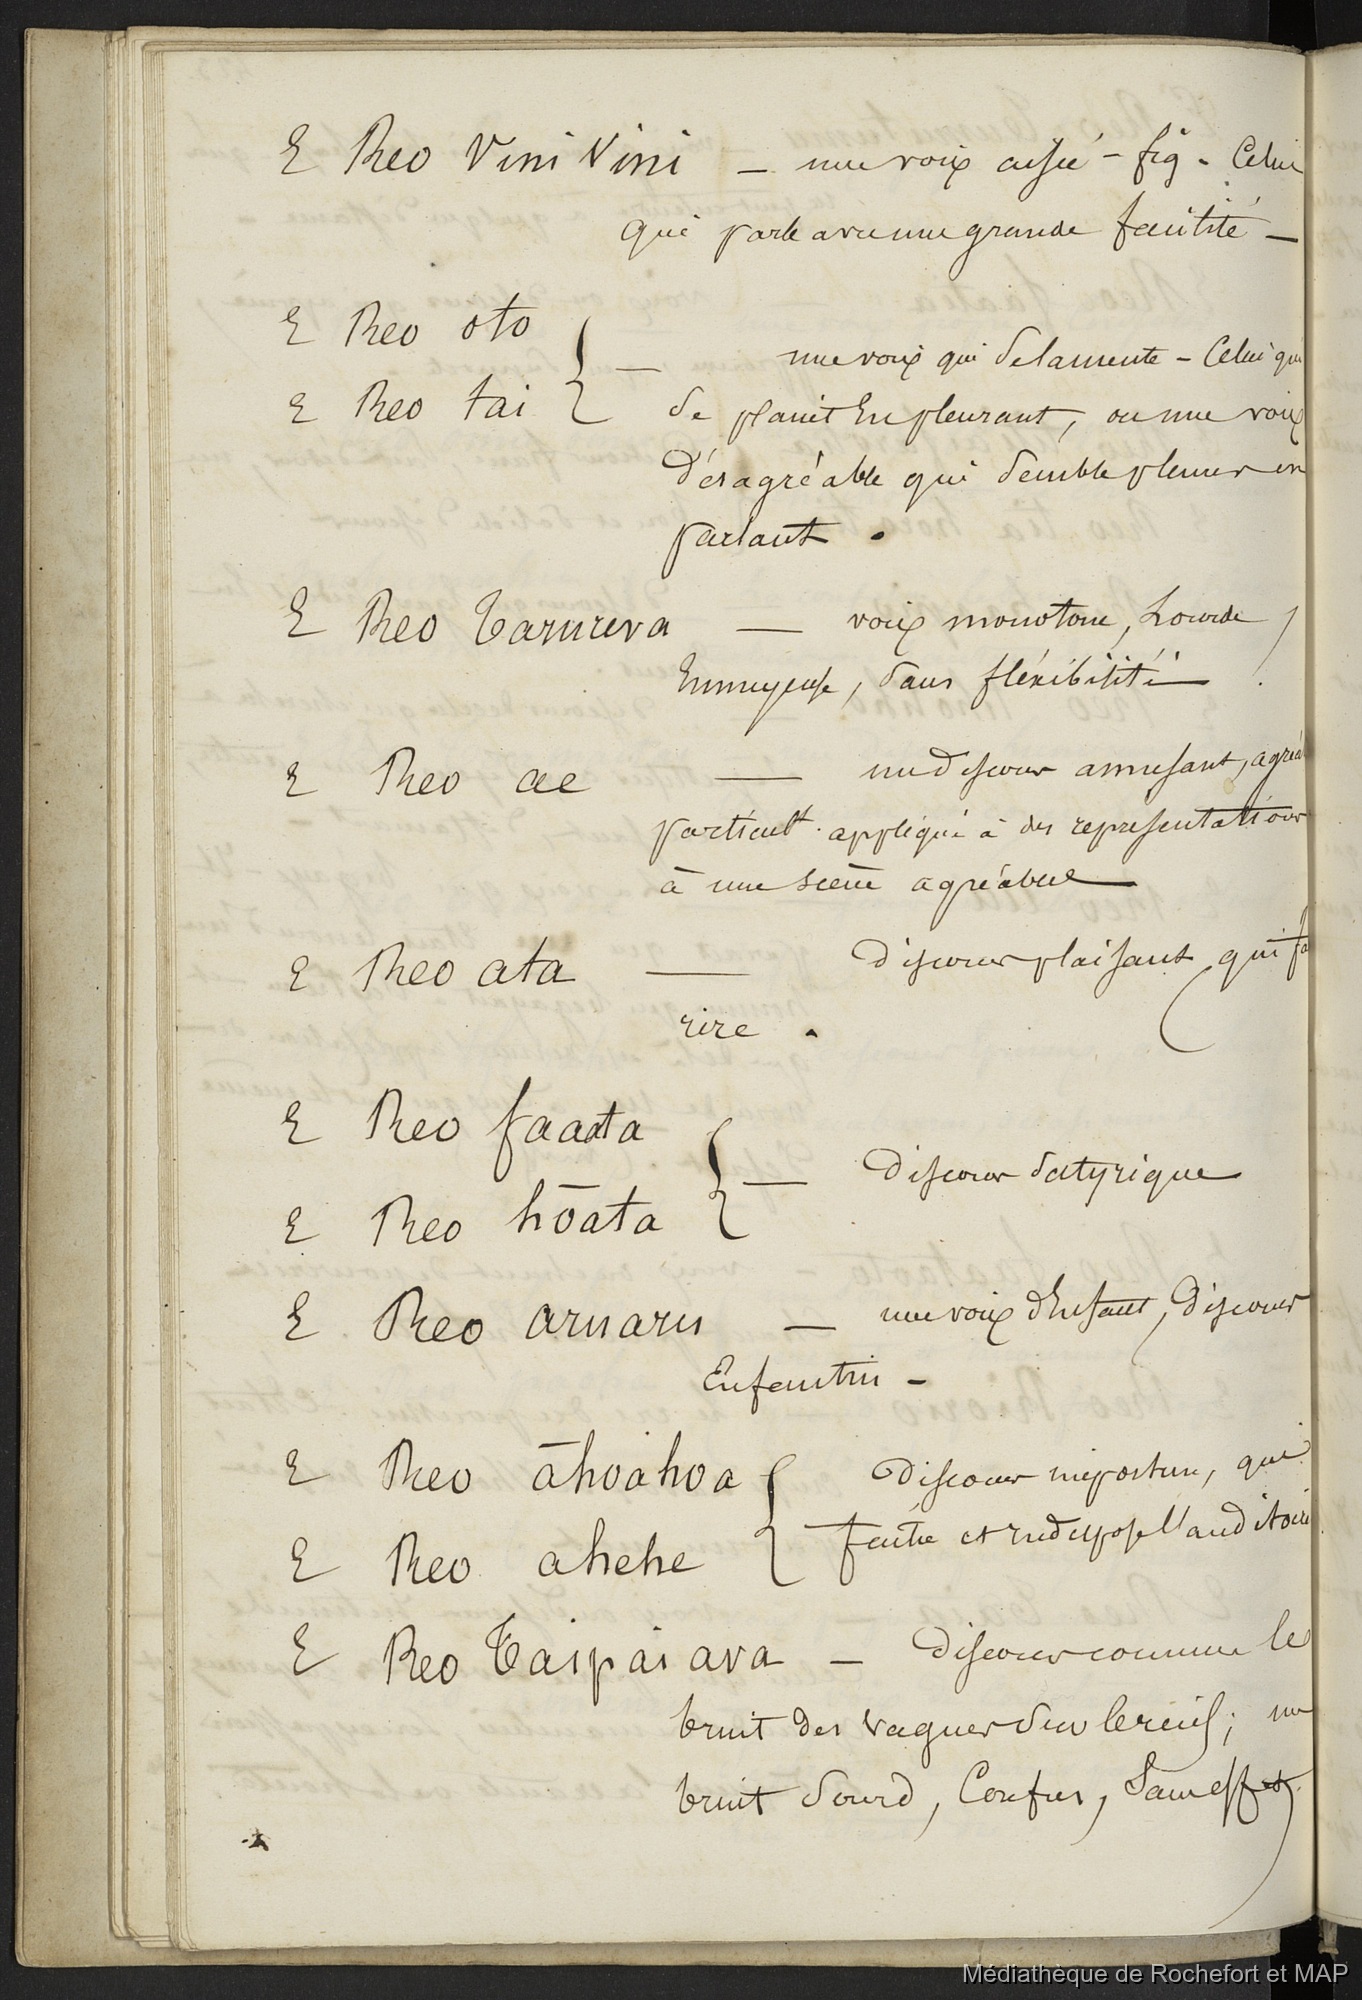 E Reo Vini Vini — une voix aisée – fig – Celui
qui parle avec une grande facilité —
E Reo oto
E Reo tai
— une voix qui se lamente – Celui qui
se plaint En pleurant, ou une voix
désagréable qui semble pleurer en
parlant .
E Reo Tarureva — voix monotone, Lourde,
Ennuyeuse, sans fléxibilité —
E Reo aee — un discour amusant, agréa
particult. appliqué à des representations
à une scene agréable —
E Reo ata — Discour plaisant qui fa
rire .
E Reo faaata
E Reo hōata
— Discour satyrique
E Reo aruaru — une voix d'Enfant, Discour
Enfantin –
E Reo āhoahoa
E Reo ahehe
Discour importun, qui
— et indispose l'auditoire
E Reo Taipai ava — Discour comme le
bruit des vagues sur le recif; un
bruit sourd, Confus, Sans effet
Médiathèque de Rochefort et MAP